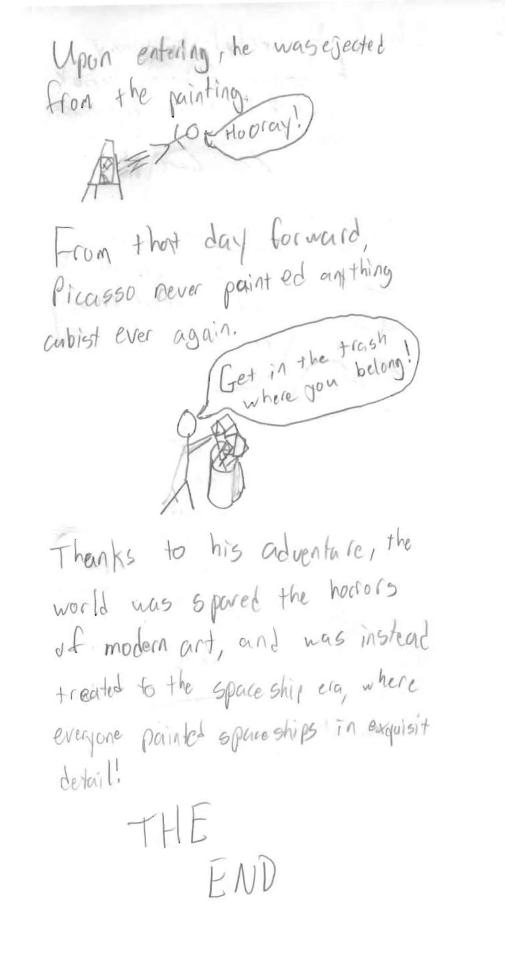 Upon entering, he was ejected
from the painting.
Hooray!
From that day forward,
Picasso never painted anything
cubist ever again.
Get in the trash
where you belong!
Thanks to his adventure, the
world was spared the horrors
of modern art, and was instead
treated to the spaceship era, where
everyone painted spaceships in exquisit
detail!
THE
END